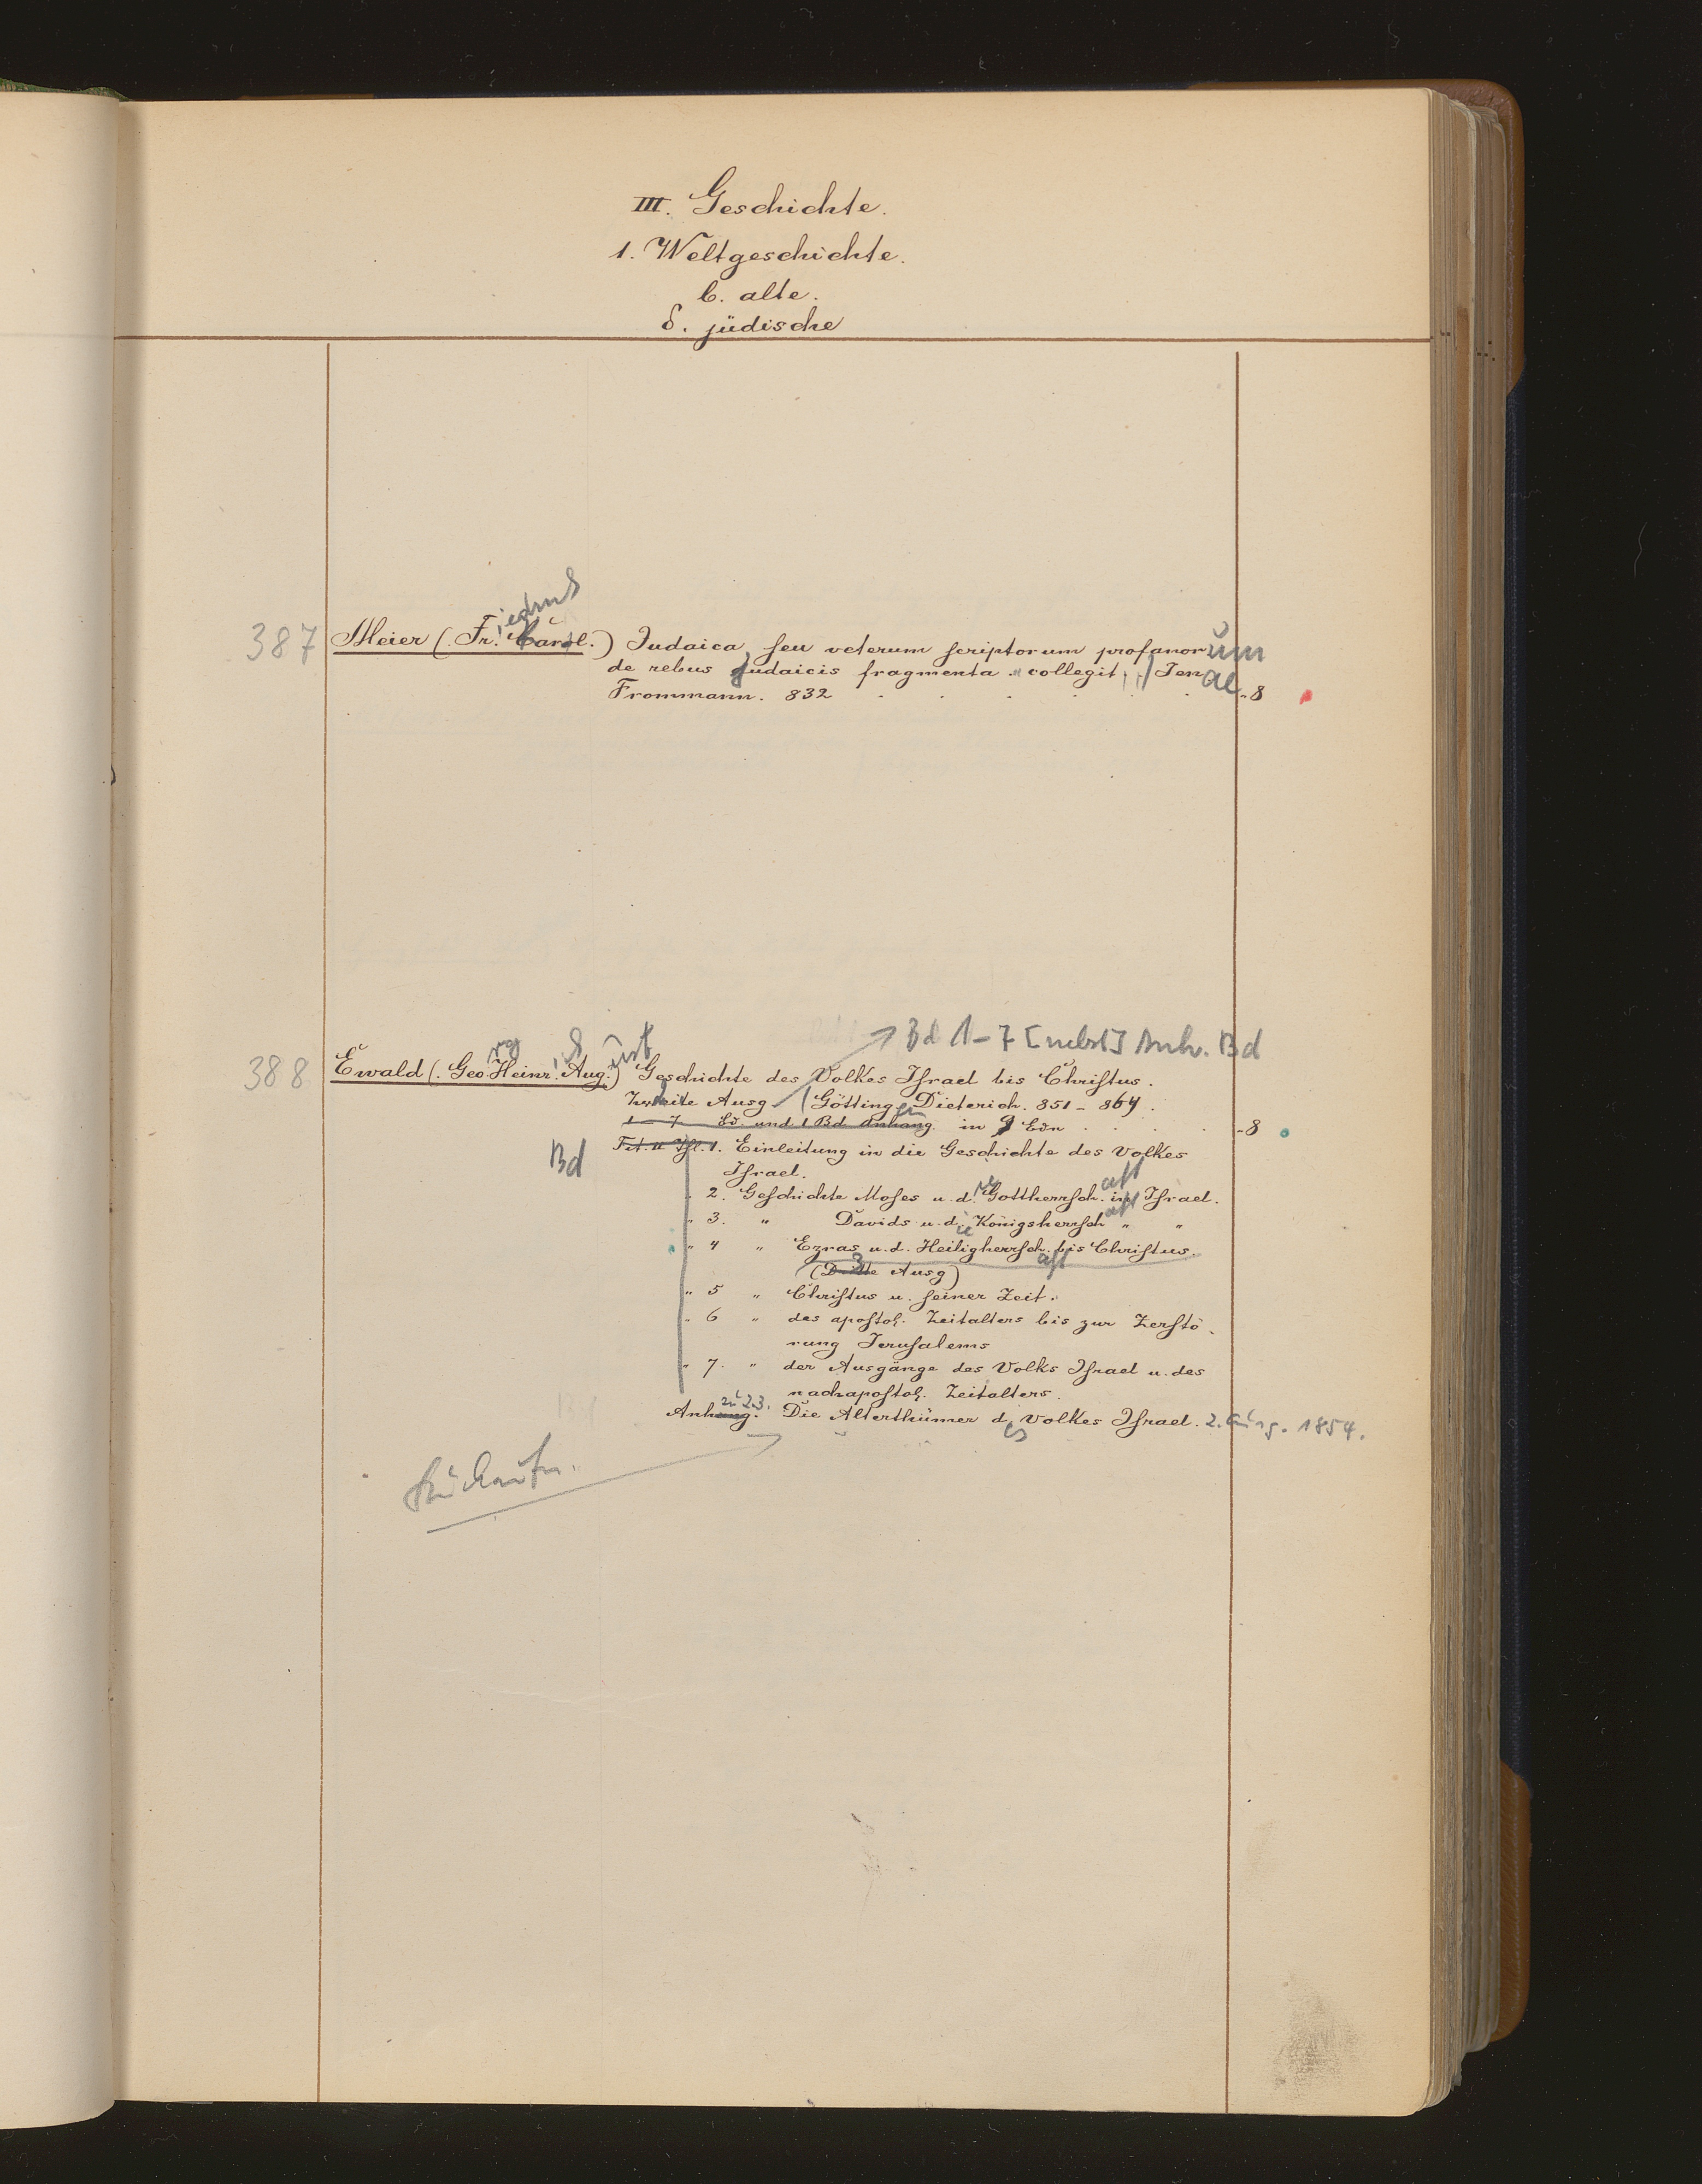 III. Geschichte.
1. Weltgeschichte.
b. alte.
δ. jüdische
387 Meier (Fr. Carol.) Judaica, seu veterum scriptorum profanorum
de rebus Judaicis fragmenta collegit. Jenae
Frommann. 832 . . . . . . 8
Bd 1-7 [nebst] Anh. Bd
388 Ewald (Georg Heinr. August) Geschichte des Volkes Israel bis Christus.
Zweite Ausg (Göttingen Dieterich. 851-864.
1-7. Bd. und 1 Bd Anhang. in Bdn . . . 8
Bd 1. Einleitung in die Geschichte des Volkes
Israel.
" 2. Geschichte Moses u. d. Gottherrschaft in Israel.
" 3. " Davids u. d. Königsherrschaft " "
" 4 " Ezras u. d. Heiligherrschaft bis Christus.
(Dritte Ausg)
" 5 " Christus u. seiner Zeit.
" 6 " des apostol. Zeitalters bis zur Zerstö-
rung Jerusalems
" 7. " der Ausgänge des Volks Israel u. des
nachapostol. Zeitalters.
Anhang. zu 2.3. Die Alterthümer des Volkes Israel. 2. Ausg. 1854.